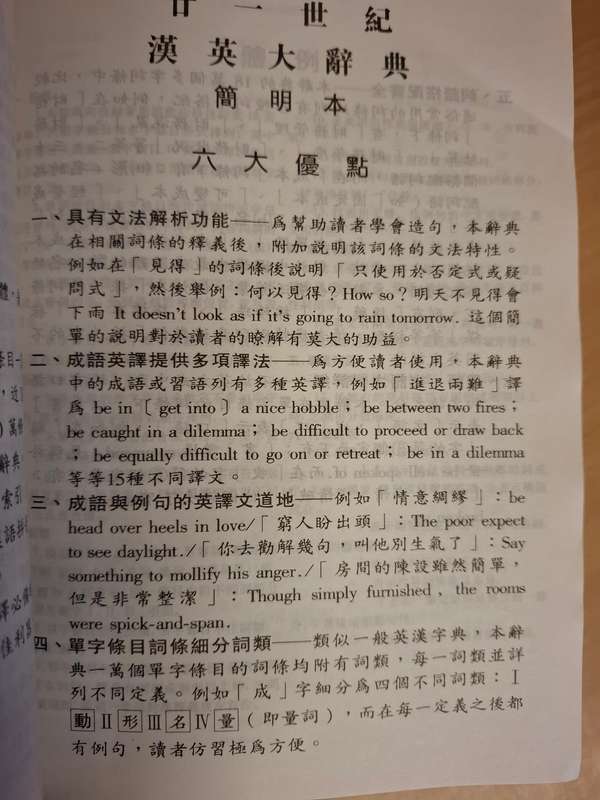 廿一世紀
漢英大辭典
簡明本
六大優點
一、具有文法解析功能——爲幫助讀者學會造句，本辭典
在相關詞條的釋義後，附加説明該詞條的文法特性。
例如在「見得」的詞條後説明「只使用於否定式或疑
問式」，然後舉例：何以見得？How so？明天不見得會
下雨 It doesn't look as if it's going to rain tomorrow. 這個簡
單的説明對於讀者的瞭解有莫大的助益。
二、成語英譯提供多項譯法——爲方便讀者使用，本辭典
中的成語或習語列有多種英譯，例如「進退兩難」譯
爲 be in〔 get into 〕a nice hobble； be between two fires；
be caught in a dilemma； be difficult to proceed or draw back
； be equally difficult to go on or retreat； be in a dilemma
等等15種不同譯文。
三、成語與例句的英譯文道地——例如「情意綢繆」：be
head over heels in love/「窮人盼出頭」：The poor expect
to see daylight./「你去勸解幾句，叫他別生氣了」：Say
something to mollify his anger./「房間的陳設雖然簡單，
但是非常整潔」：Though simply furnished, the rooms
were spick-and-span.
四、單字條目詞條細分詞類——類似一般英漢字典，本辭
典一萬個單字條目的詞條均附有詞類，每一詞類並詳
列不同定義。例如「成」字細分爲四個不同詞類：Ⅰ
動Ⅱ形Ⅲ名Ⅳ量（即量詞），而在每一定義之後都
有例句，讀者仿習極爲方便。